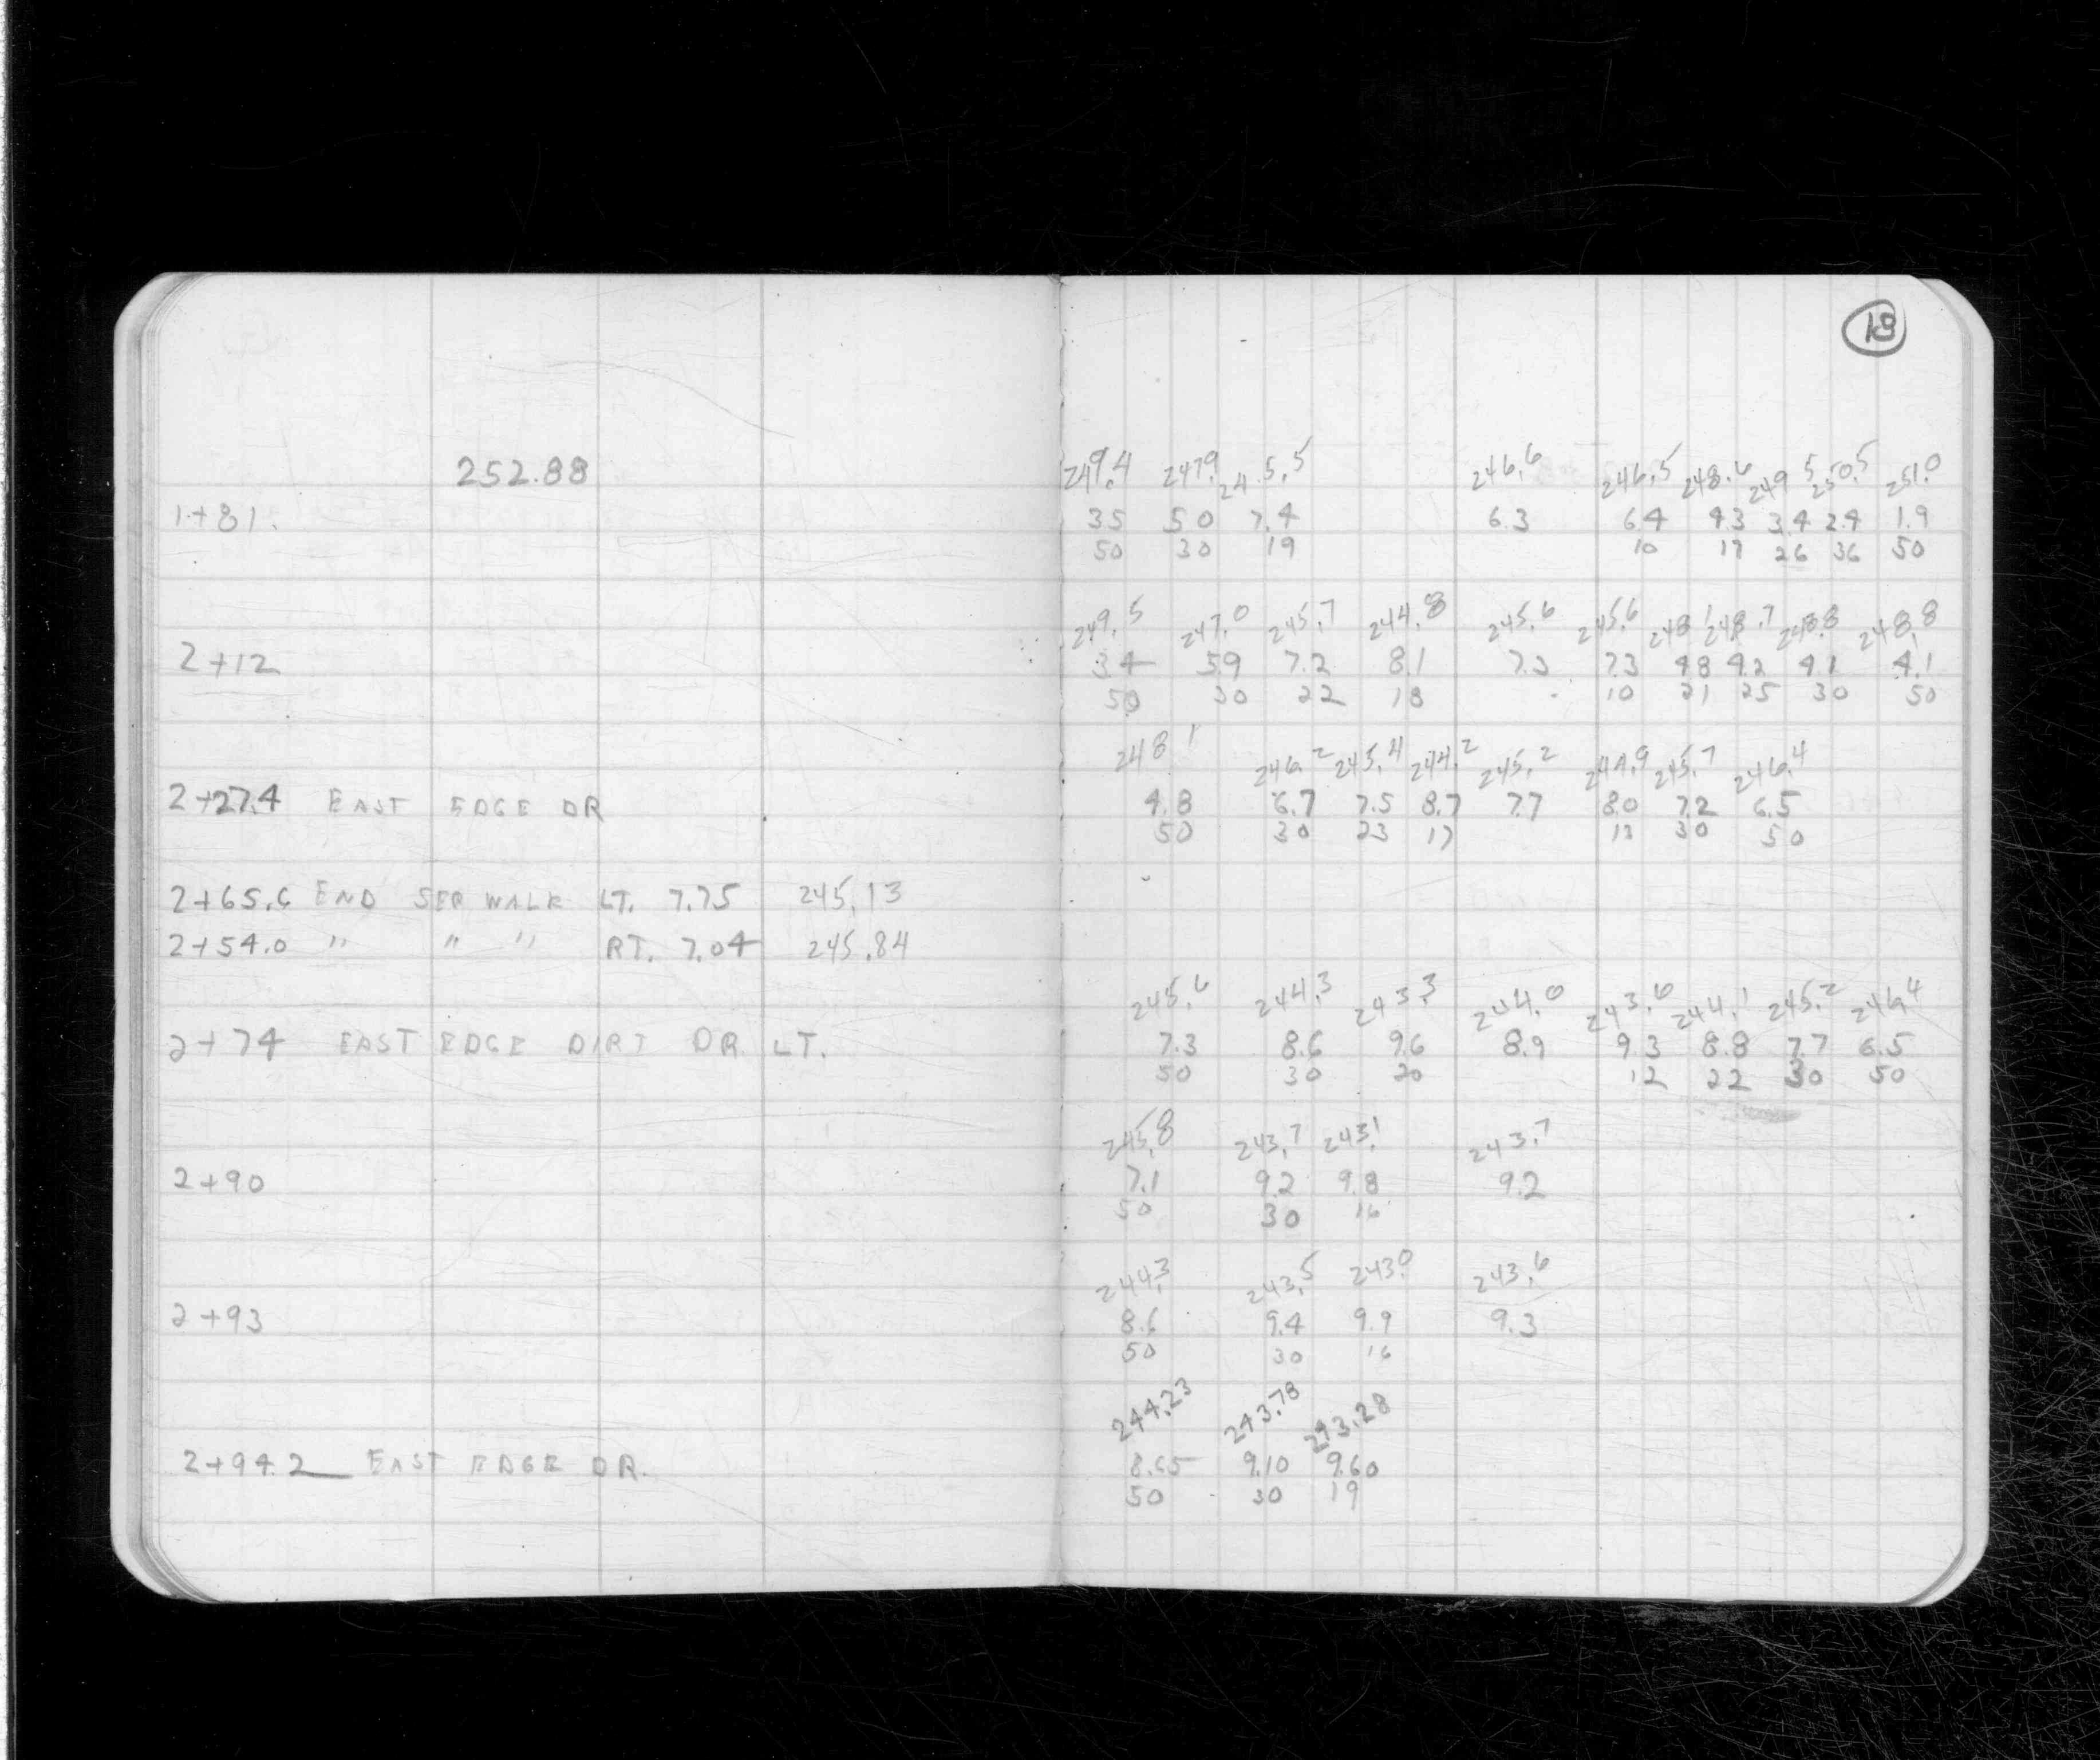 18
252.88
249.4 247.9 245.5 246.6 246.5 248.6 249.5 250.5 251.0
1+81. 35 50 7.4 6.3 6.4 4.3 3.4 2.4 1.9
50 30 19 10 17 26 36 50
249.5 247.0 245.7 244.8 245.6 245.6 248.1 248.7 248.8 248.8
2+12 3.4 5.9 7.2 8.1 7.3 7.3 4.8 4.2 4.1 4.1
50 30 22 18 10 21 25 30 50
248.1 246.2 245.4 244.2 245.2 244.9 245.7 246.4
2+27.4 EAST EDGE DR 4.8 6.7 7.5 8.7 7.7 8.0 7.2 6.5
50 30 23 17 13 30 50
2+65.6 END SER WALK LT. 7.75 245.13
2+54.0 " " " RT. 7.04 245.84
245.6 244.3 243.3 244.0 243.6 244.1 245.2 246.4
2+74 EAST EDGE DIRT DR. LT. 7.3 8.6 9.6 8.9 9.3 8.8 7.7 6.5
50 30 20 12 22 30 50
245.8 243.7 243.1 243.7
2+90 7.1 9.2 9.8 9.2
50 30 16
244.3 243.5 243.0 243.6
2+93 8.6 9.4 9.9 9.3
50 30 16
244.23 243.78 243.28
2+94.2 EAST EDGE DR. 8.65 9.10 9.60
50 30 19